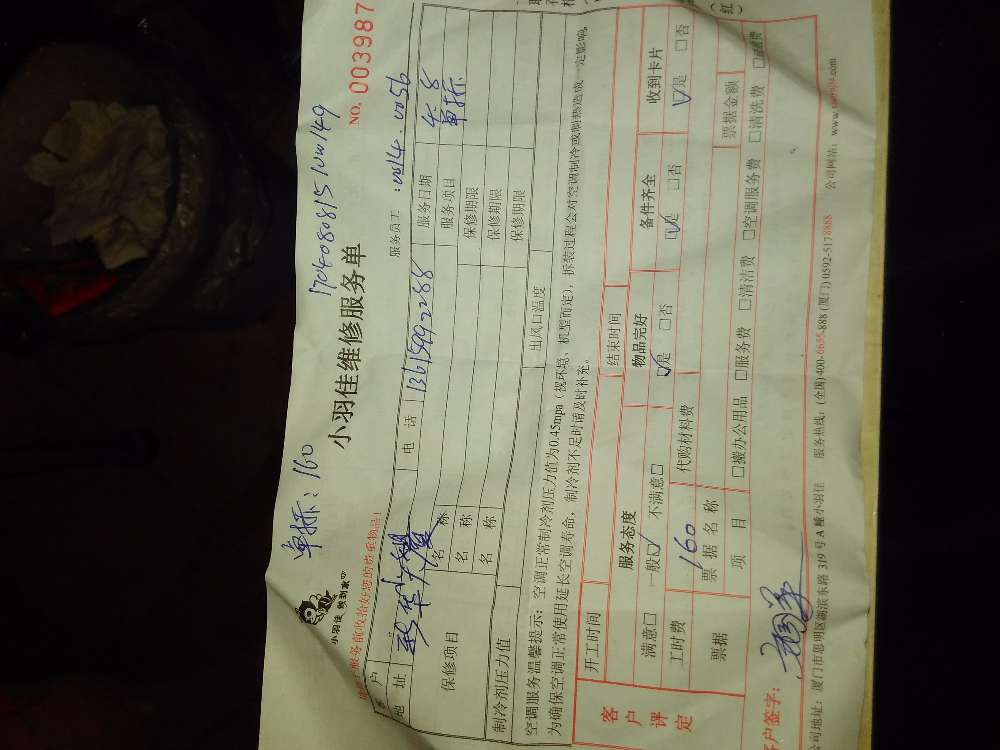 单拆：160
17040808151044149
小羽佳 修到家
小羽佳维修服务单
NO. 003987
服务前收拾好您的贵重物品！
服务员工：0014.0056
户
电话 13615992288
服务日期 4.8
地址 新华大厦
服务项目 单拆
保修项目
名称
保修期限
名称
保修期限
名称
保修期限
制冷剂压力值
出风口温度
空调服务温馨提示：空调正常制冷剂压力值为0.45mpa（视环境、机型而定），拆装过程会对空调制冷或制热造成一定影响。
为确保空调正常使用延长空调寿命，制冷剂不足时请及时补充。
客户评定
开工时间
结束时间
服务态度
物品完好
备件齐全
收到卡片
满意□ 一般☑ 不满意□
☑是 □否
☑是 □否
☑是 □否
工时费 160
代购材料费
票据
票据名称
票据金额
项目
□搬办公用品 □服务费 □清洁费 □空调服务费 □清洗费
客户签字：
公司地址：厦门市思明区湖滨东路319号A幢小羽佳 服务热线：(全国)400-6655-888 (厦门)0592-5178888 公司网站：